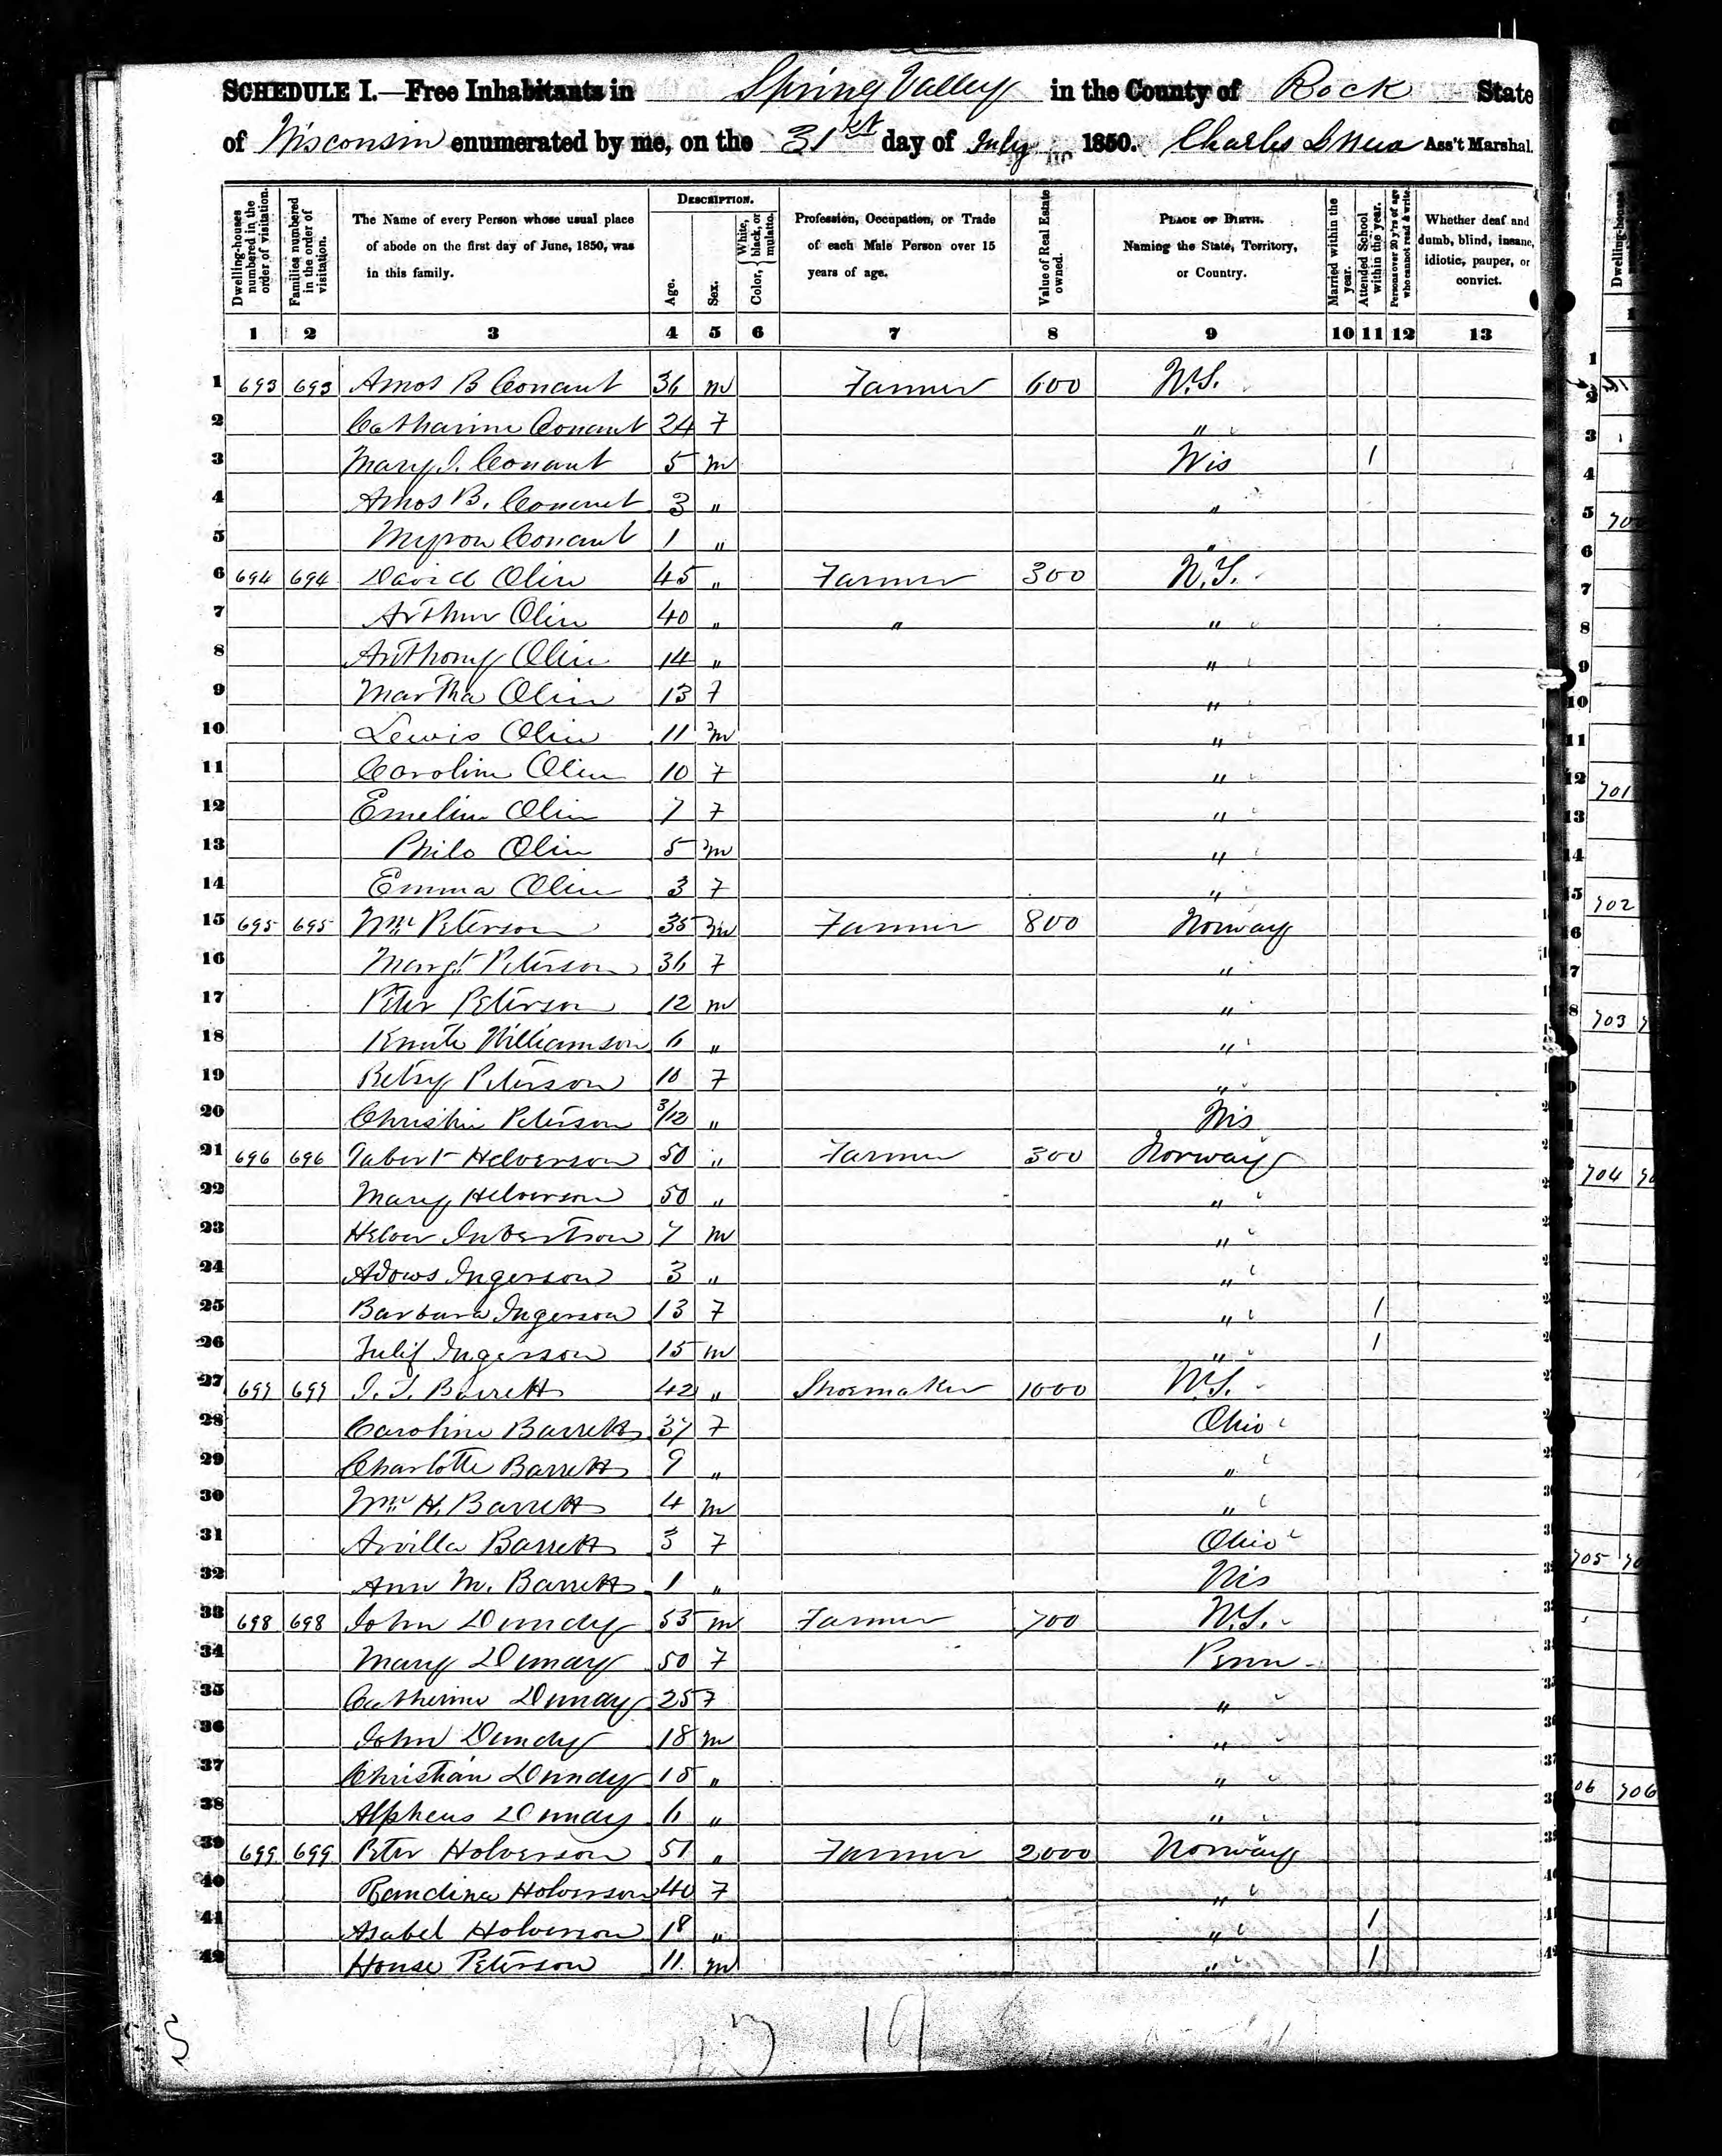 SCHEDULE I.—Free Inhabitants in Spring Valley in the County of Rock State
of Wisconsin enumerated by me, on the 31st day of July 1850. Charles Ass't Marshal.
Dwelling-houses numbered in the order of visitation.
Families numbered in the order of visitation.
The Name of every Person whose usual place of abode on the first day of June, 1850, was in this family.
DESCRIPTION.
Age.
Sex.
Color, White, black, or mulatto.
Profession, Occupation, or Trade of each Male Person over 15 years of age.
Value of Real Estate owned.
PLACE OF BIRTH. Naming the State, Territory, or Country.
Married within the year.
Attended School within the year.
Persons over 20 y'rs of age who cannot read & write.
Whether deaf and dumb, blind, insane, idiotic, pauper, or convict.
1 2 3 4 5 6 7 8 9 10 11 12 13
1 693 693 Amos B Conant 36 m Farmer 600 N.Y.
2 Catharine Conant 24 F "
3 Mary J. Conant 5 m Wis 1
4 Amos B. Conant 3 " "
5 Myron Conant 1 " "
6 694 694 David Olin 45 " Farmer 300 N.Y.
7 Arthur Olin 40 " " "
8 Anthony Olin 14 " "
9 Martha Olin 13 F "
10 Lewis Olin 11 m "
11 Caroline Olin 10 F "
12 Emeline Olin 7 F "
13 Philo Olin 5 m "
14 Emma Olin 3 F "
15 695 695 Wm Peterson 35 m Farmer 800 Norway
16 Margt Peterson 36 F "
17 Peter Peterson 12 m "
18 Knute Williamson 6 " "
19 Betsy Peterson 10 F "
20 Christin Peterson 3/12 " Wis
21 696 696 Helverson 50 " Farmer 300 Norway
22 Mary Helverson 50 " "
23 Helver 7 m "
24 Ingerson 3 " "
25 Barbara Ingerson 13 F " 1
26 Ingerson 15 m " 1
27 697 697 Barrett 42 " Shoemaker 1000 N.Y.
28 Caroline Barrett 37 F Ohio
29 Charlotte Barrett 9 " "
30 Wm H. Barrett 4 m "
31 Arvilla Barrett 3 F Ohio
32 Ann M. Barrett 1 " Wis
33 698 698 John Dundy 55 m Farmer 700 N.Y.
34 Mary Dunday 50 F Penn
35 Catherine Dunday 25 F "
36 John Dundy 18 m "
37 Christian Dundy 15 " "
38 Alpheus Dundy 6 " "
39 699 699 Peter Holverson 51 " Farmer 2000 Norway
40 Randina Holverson 40 F "
41 Asabel Holverson 18 " " 1
42 House Peterson 11 m " 1